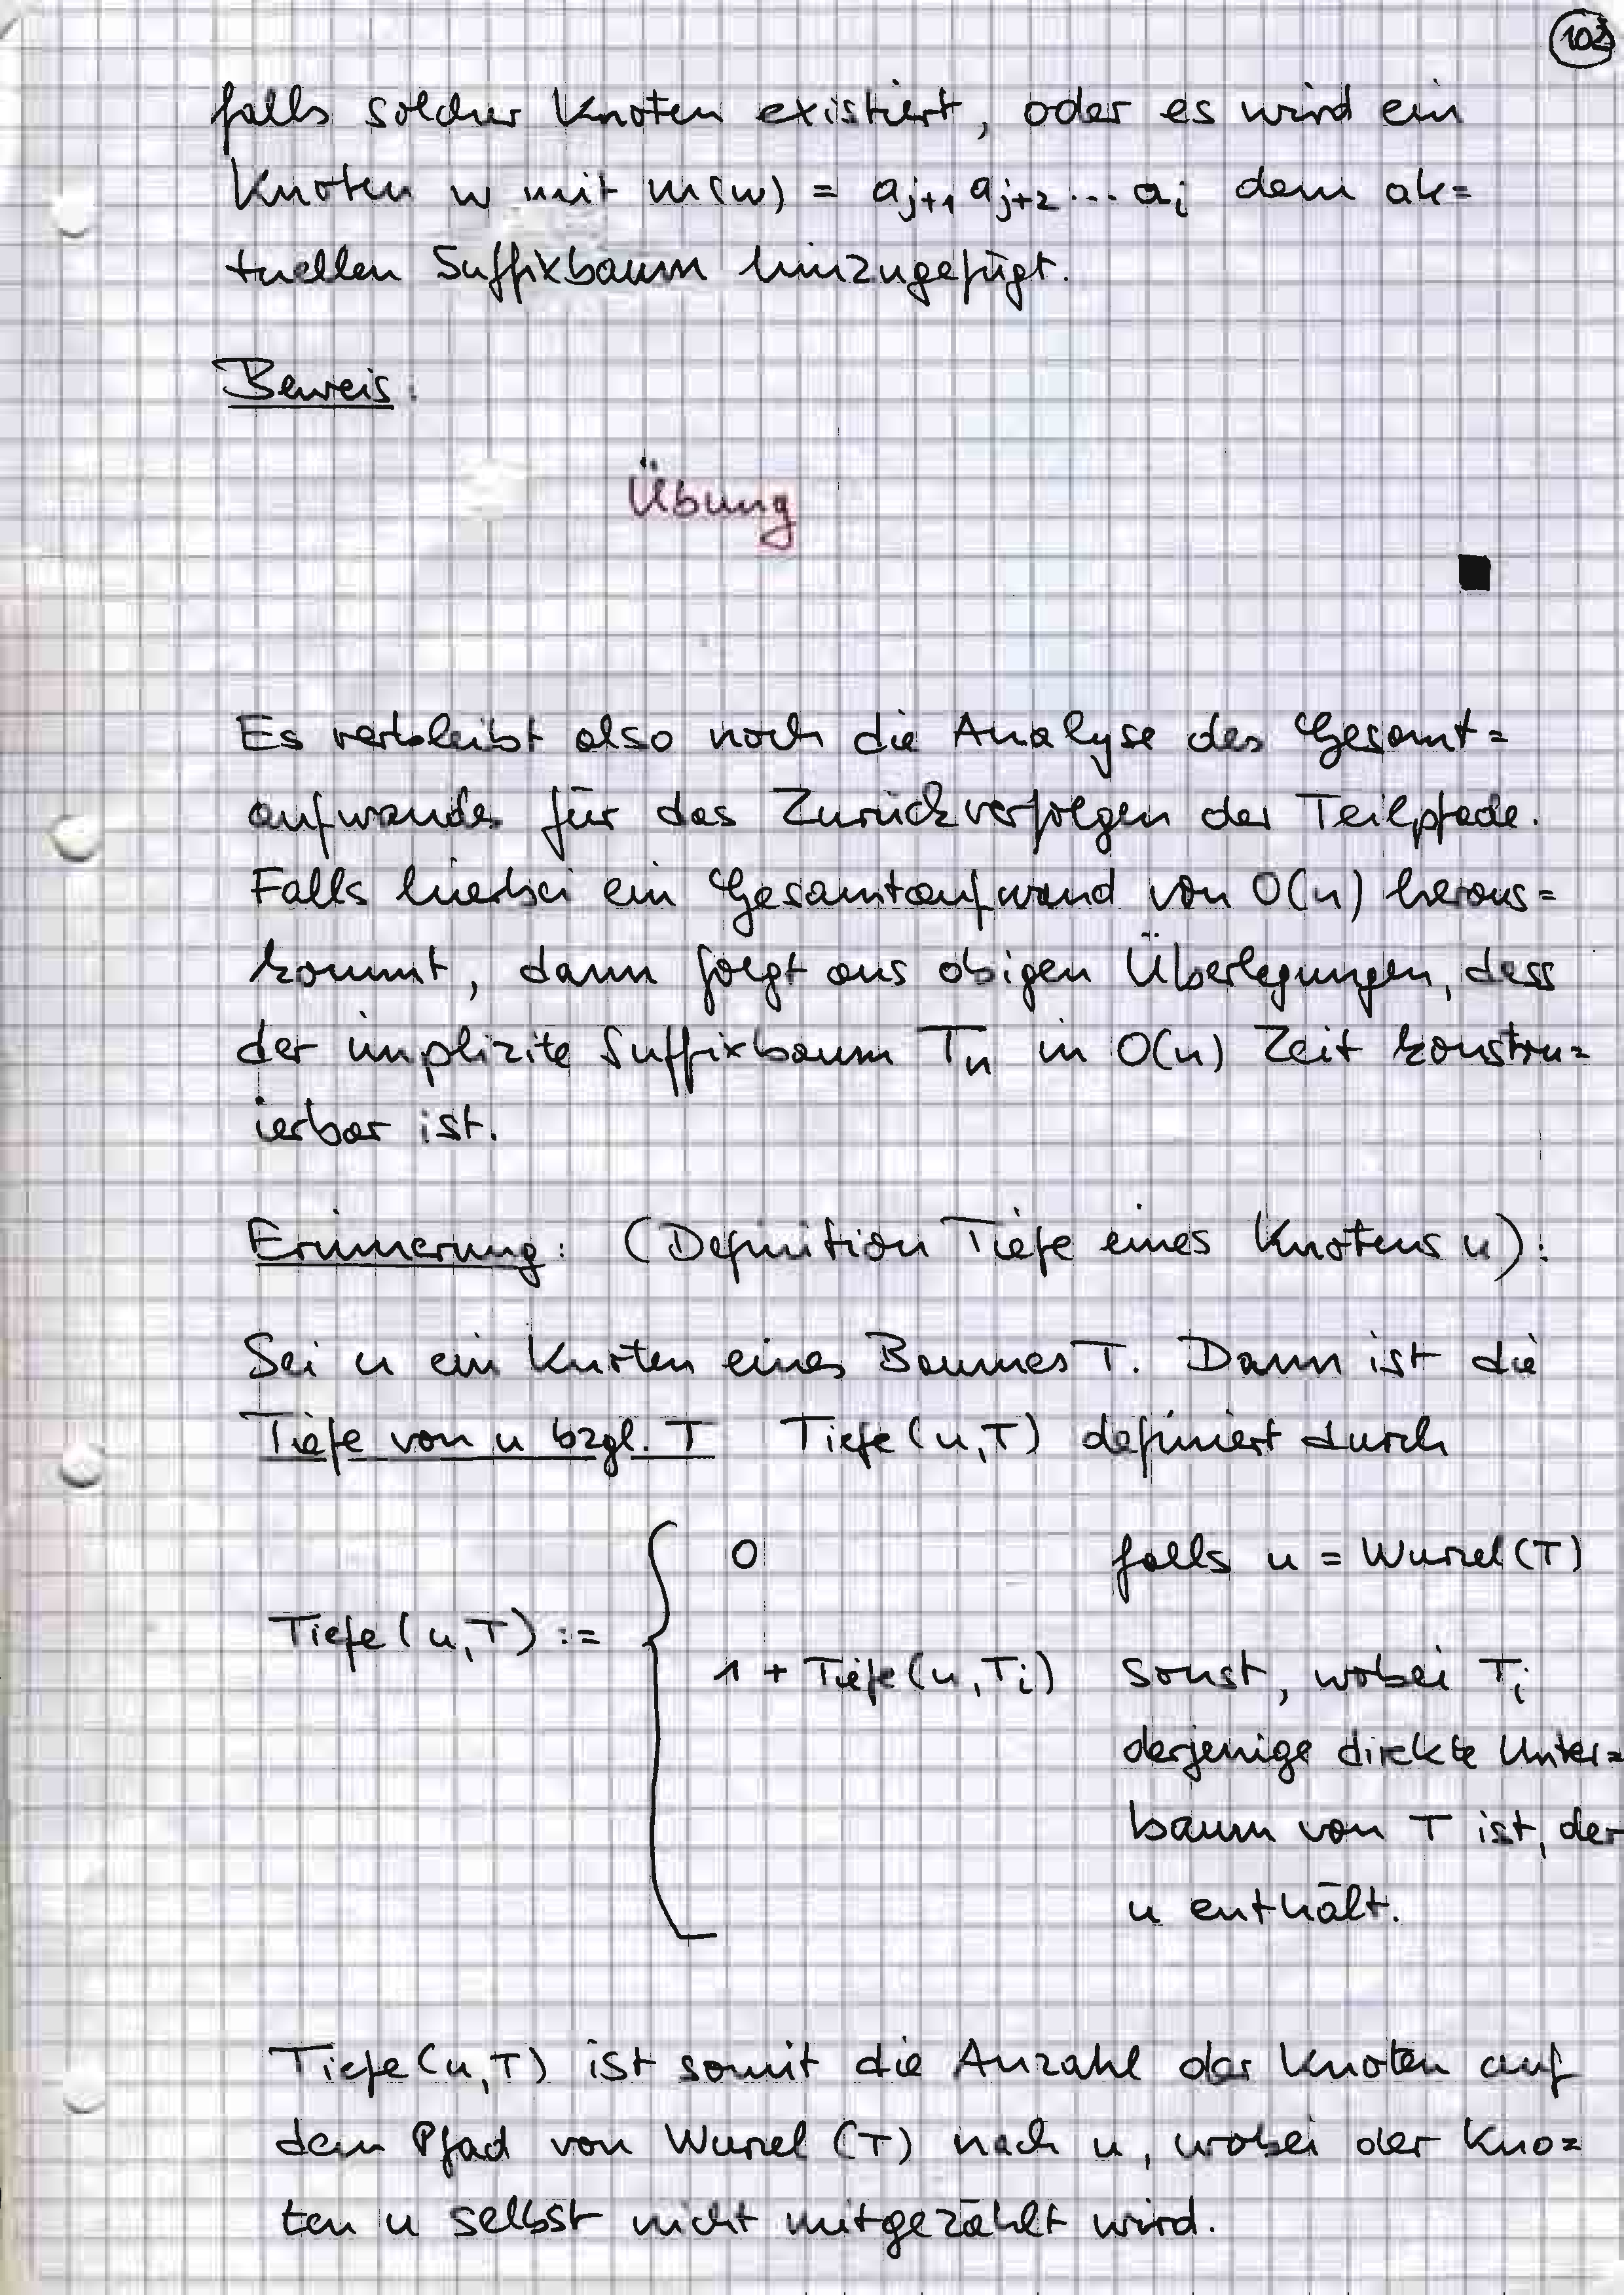 falls solcher Knoten existiert, oder es wird ein
Knoten w mit m(w) = a_{j+1} a_{j+2} ... a_i dem ak=
tuellen Suffixbaum hinzugefügt.
Beweis:
Übung
Es verbleibt also noch die Analyse des Gesamt=
aufwandes für das Zurückverfolgen der Teilpfade.
Falls hierbei ein Gesamtaufwand von O(n) heraus=
kommt, dann folgt aus obigen Überlegungen, dass
der implizite Suffixbaum T_n in O(n) Zeit konstru=
ierbar ist.
Erinnerung: (Definition Tiefe eines Knotens u):
Sei u ein Knoten eines Baumes T. Dann ist die
Tiefe von u bzgl. T Tiefe(u,T) definiert durch
0 falls u = Wurzel(T)
Tiefe(u,T) :=
1 + Tiefe(u,T_i) sonst, wobei T_i
derjenige direkte Unter=
baum von T ist, der
u enthält.
Tiefe(u,T) ist somit die Anzahl der Knoten auf
dem Pfad von Wurzel(T) nach u, wobei der Kno=
ten u selbst nicht mitgezählt wird.